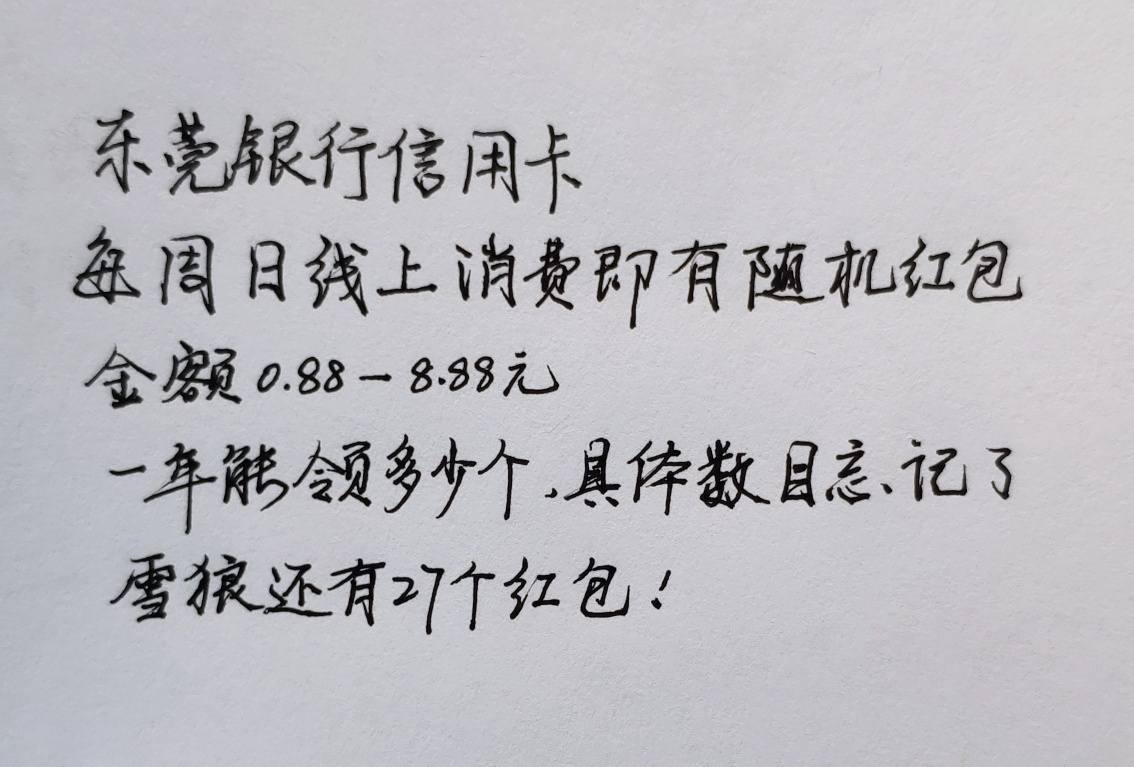 东莞银行信用卡
每周日线上消费即有随机红包
金额0.88-8.88元
一年能领多少个、具体数目忘记了
雪狼还有27个红包!